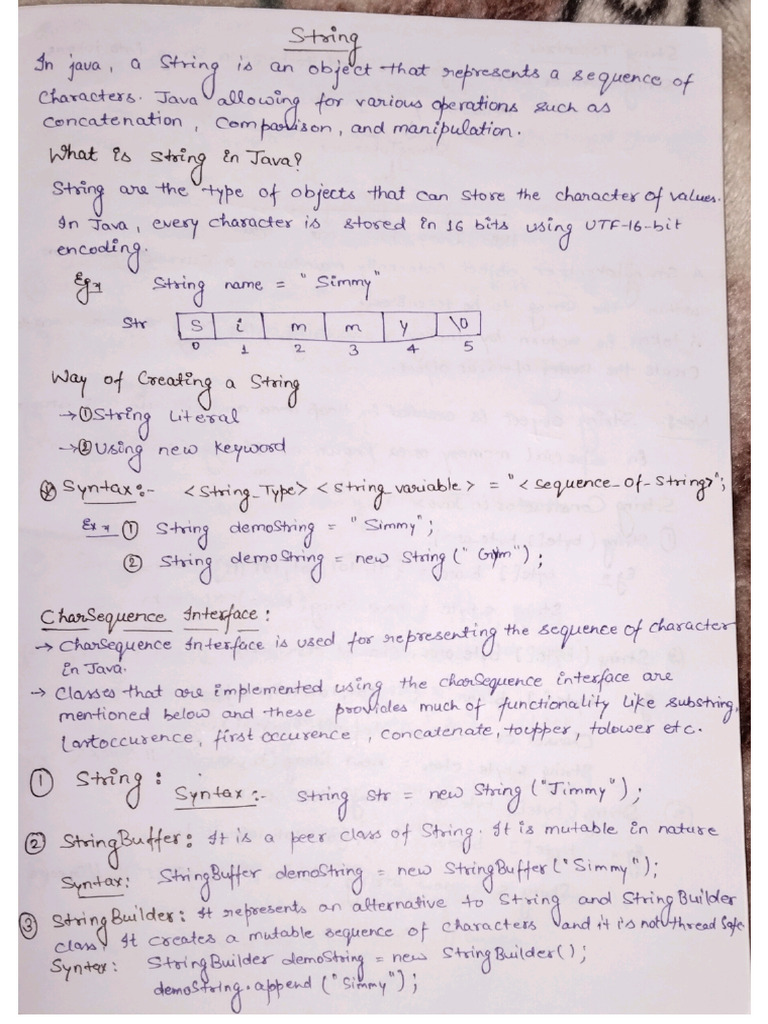 String
In java, a String is an object that represents a sequence of
Characters. Java allowing for various operations such as
concatenation, Comparison, and manipulation.
What is string in Java?
String are the type of objects that can store the character of values.
In Java, every character is stored in 16 bits using UTF-16-bit
encoding.
Eg→ String name = "Simmy"
Str S i m m y \0
0 1 2 3 4 5
Way of Creating a String
→① String Literal
→② Using new keyword
Syntax:- <String_Type> <string_variable> = "<sequence-of-String>";
Ex→ ① String demoString = "Simmy";
② String demoString = new String("Gym");
CharSequence Interface:
→ CharSequence Interface is used for representing the sequence of character
in Java.
→ Classes that are implemented using the charSequence interface are
mentioned below and these provides much of functionality like substring,
lastoccurence, first occurence, concatenate, toupper, tolower etc.
① String:
Syntax:- String str = new String("Jimmy");
② StringBuffer: It is a peer class of String. It is mutable in nature
Syntax: StringBuffer demoString = new StringBuffer("Simmy");
③ StringBuilder: It represents an alternative to String and StringBuilder
class. It creates a mutable sequence of characters and it is not thread safe
Syntax: StringBuilder demoString = new StringBuilder();
demoString.append("Simmy");